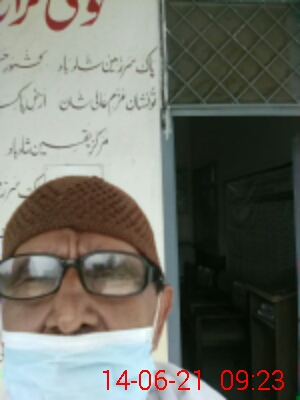 قومی ترا
پاک سرزمین شاد باد کشور حس
تو نشان عزم عالی شان ارض پاکس
مرکز یقین شاد باد
پاک سرز
14-06-21 09:23